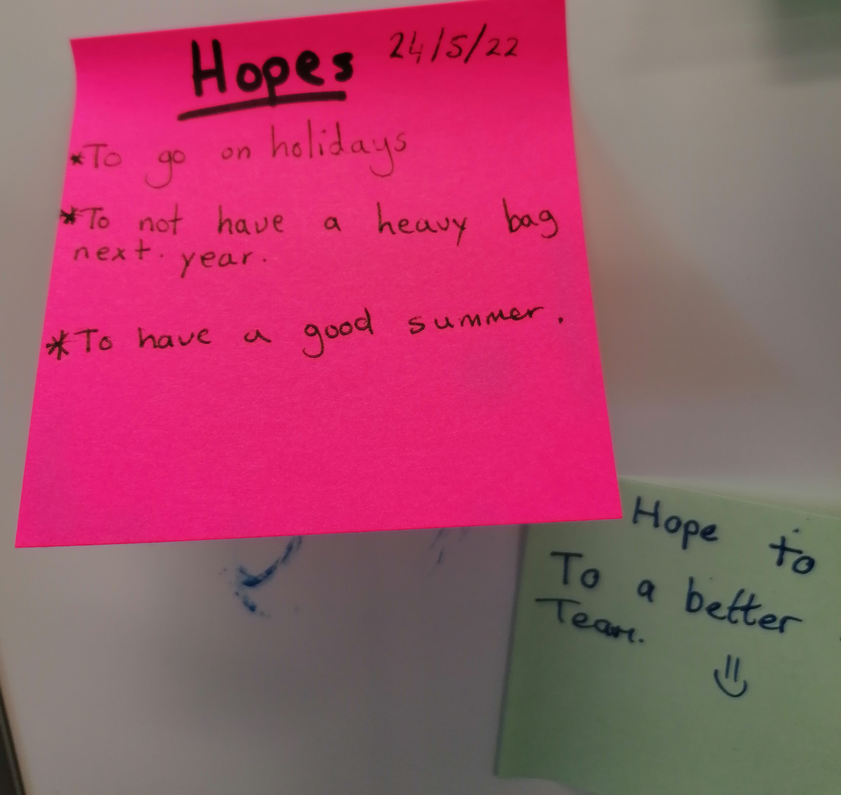 Hopes 24/5/22
*To go on holidays
*To not have a heavy bag
next. year.
*To have a good summer.
Hope to
To a better
Team.